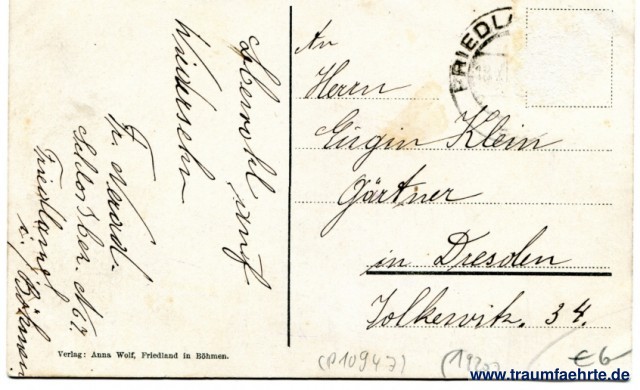 Lebewohl auf
Wiedersehn
Fr. Nowd.
Schlossber. N 67
Friedland
i. Böhmen.
Verlag: Anna Wolf, Friedland in Böhmen.
FRIEDLA
An
Herrn
Eugin Klein
Gärtner
in Dresden
Tolkewitz. 34.
(P10947)
€6
www.traumfaehrte.de